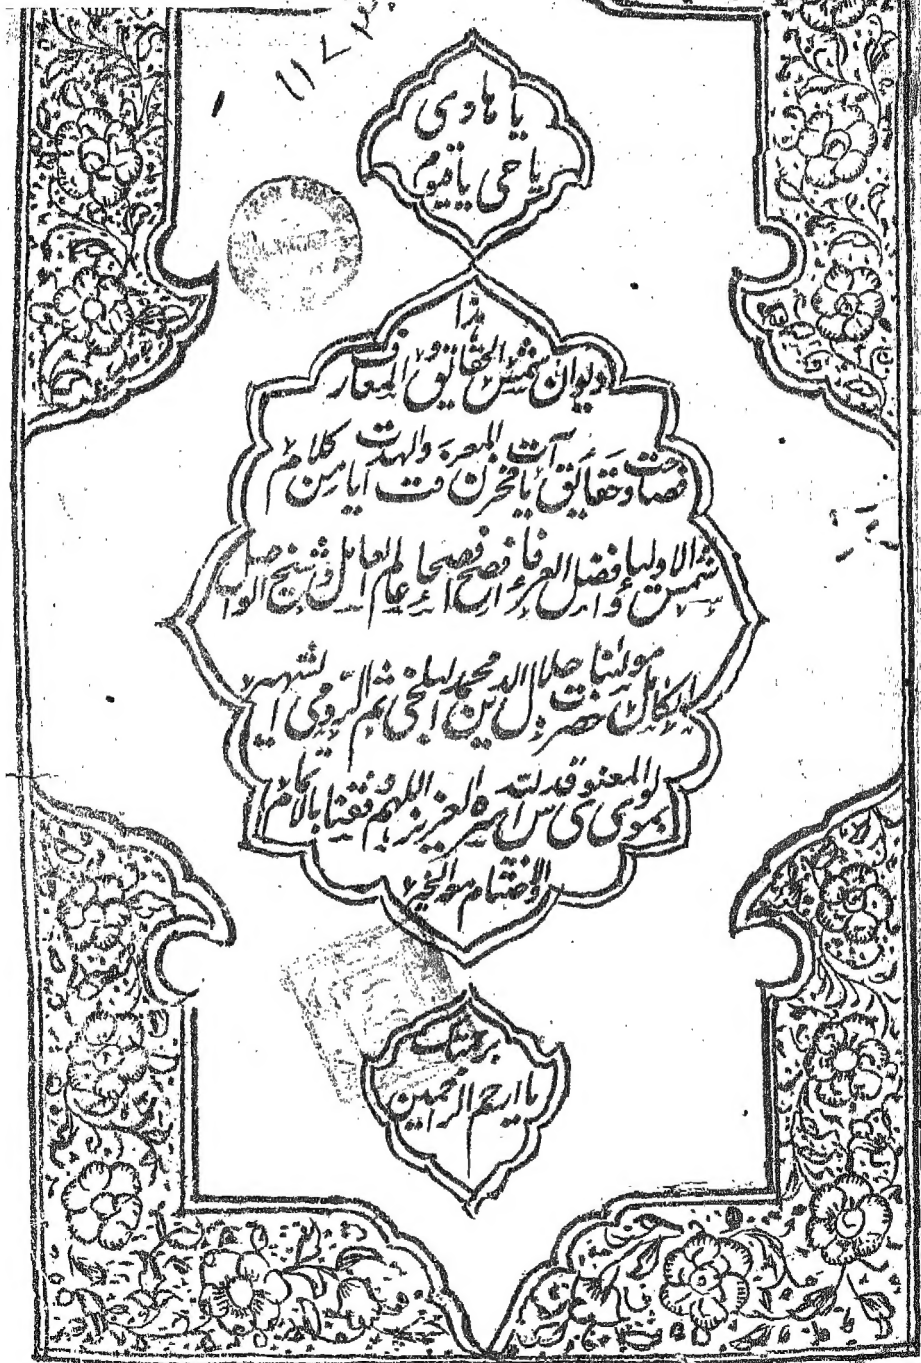 يا هادى
يا حى يا قيوم
هذا
ديوان شمس الحقائق و المعارف
فصاحت و حقايق آيات مخزن المعرفت و الهدايات من كلام
شمس الاوليا و افضل العرفا افصح فصحا عالم العامل و شيخ الواصل
الكامل حضرت مولينا جلال الدين محمد البلخى ثم الرومى الشهير
بمولوى المعنوى قدس الله سره العزيز اللهم وفقنا بالاتمام
و الاختتام مع الخير
برحمتك
يا ارحم الراحمين